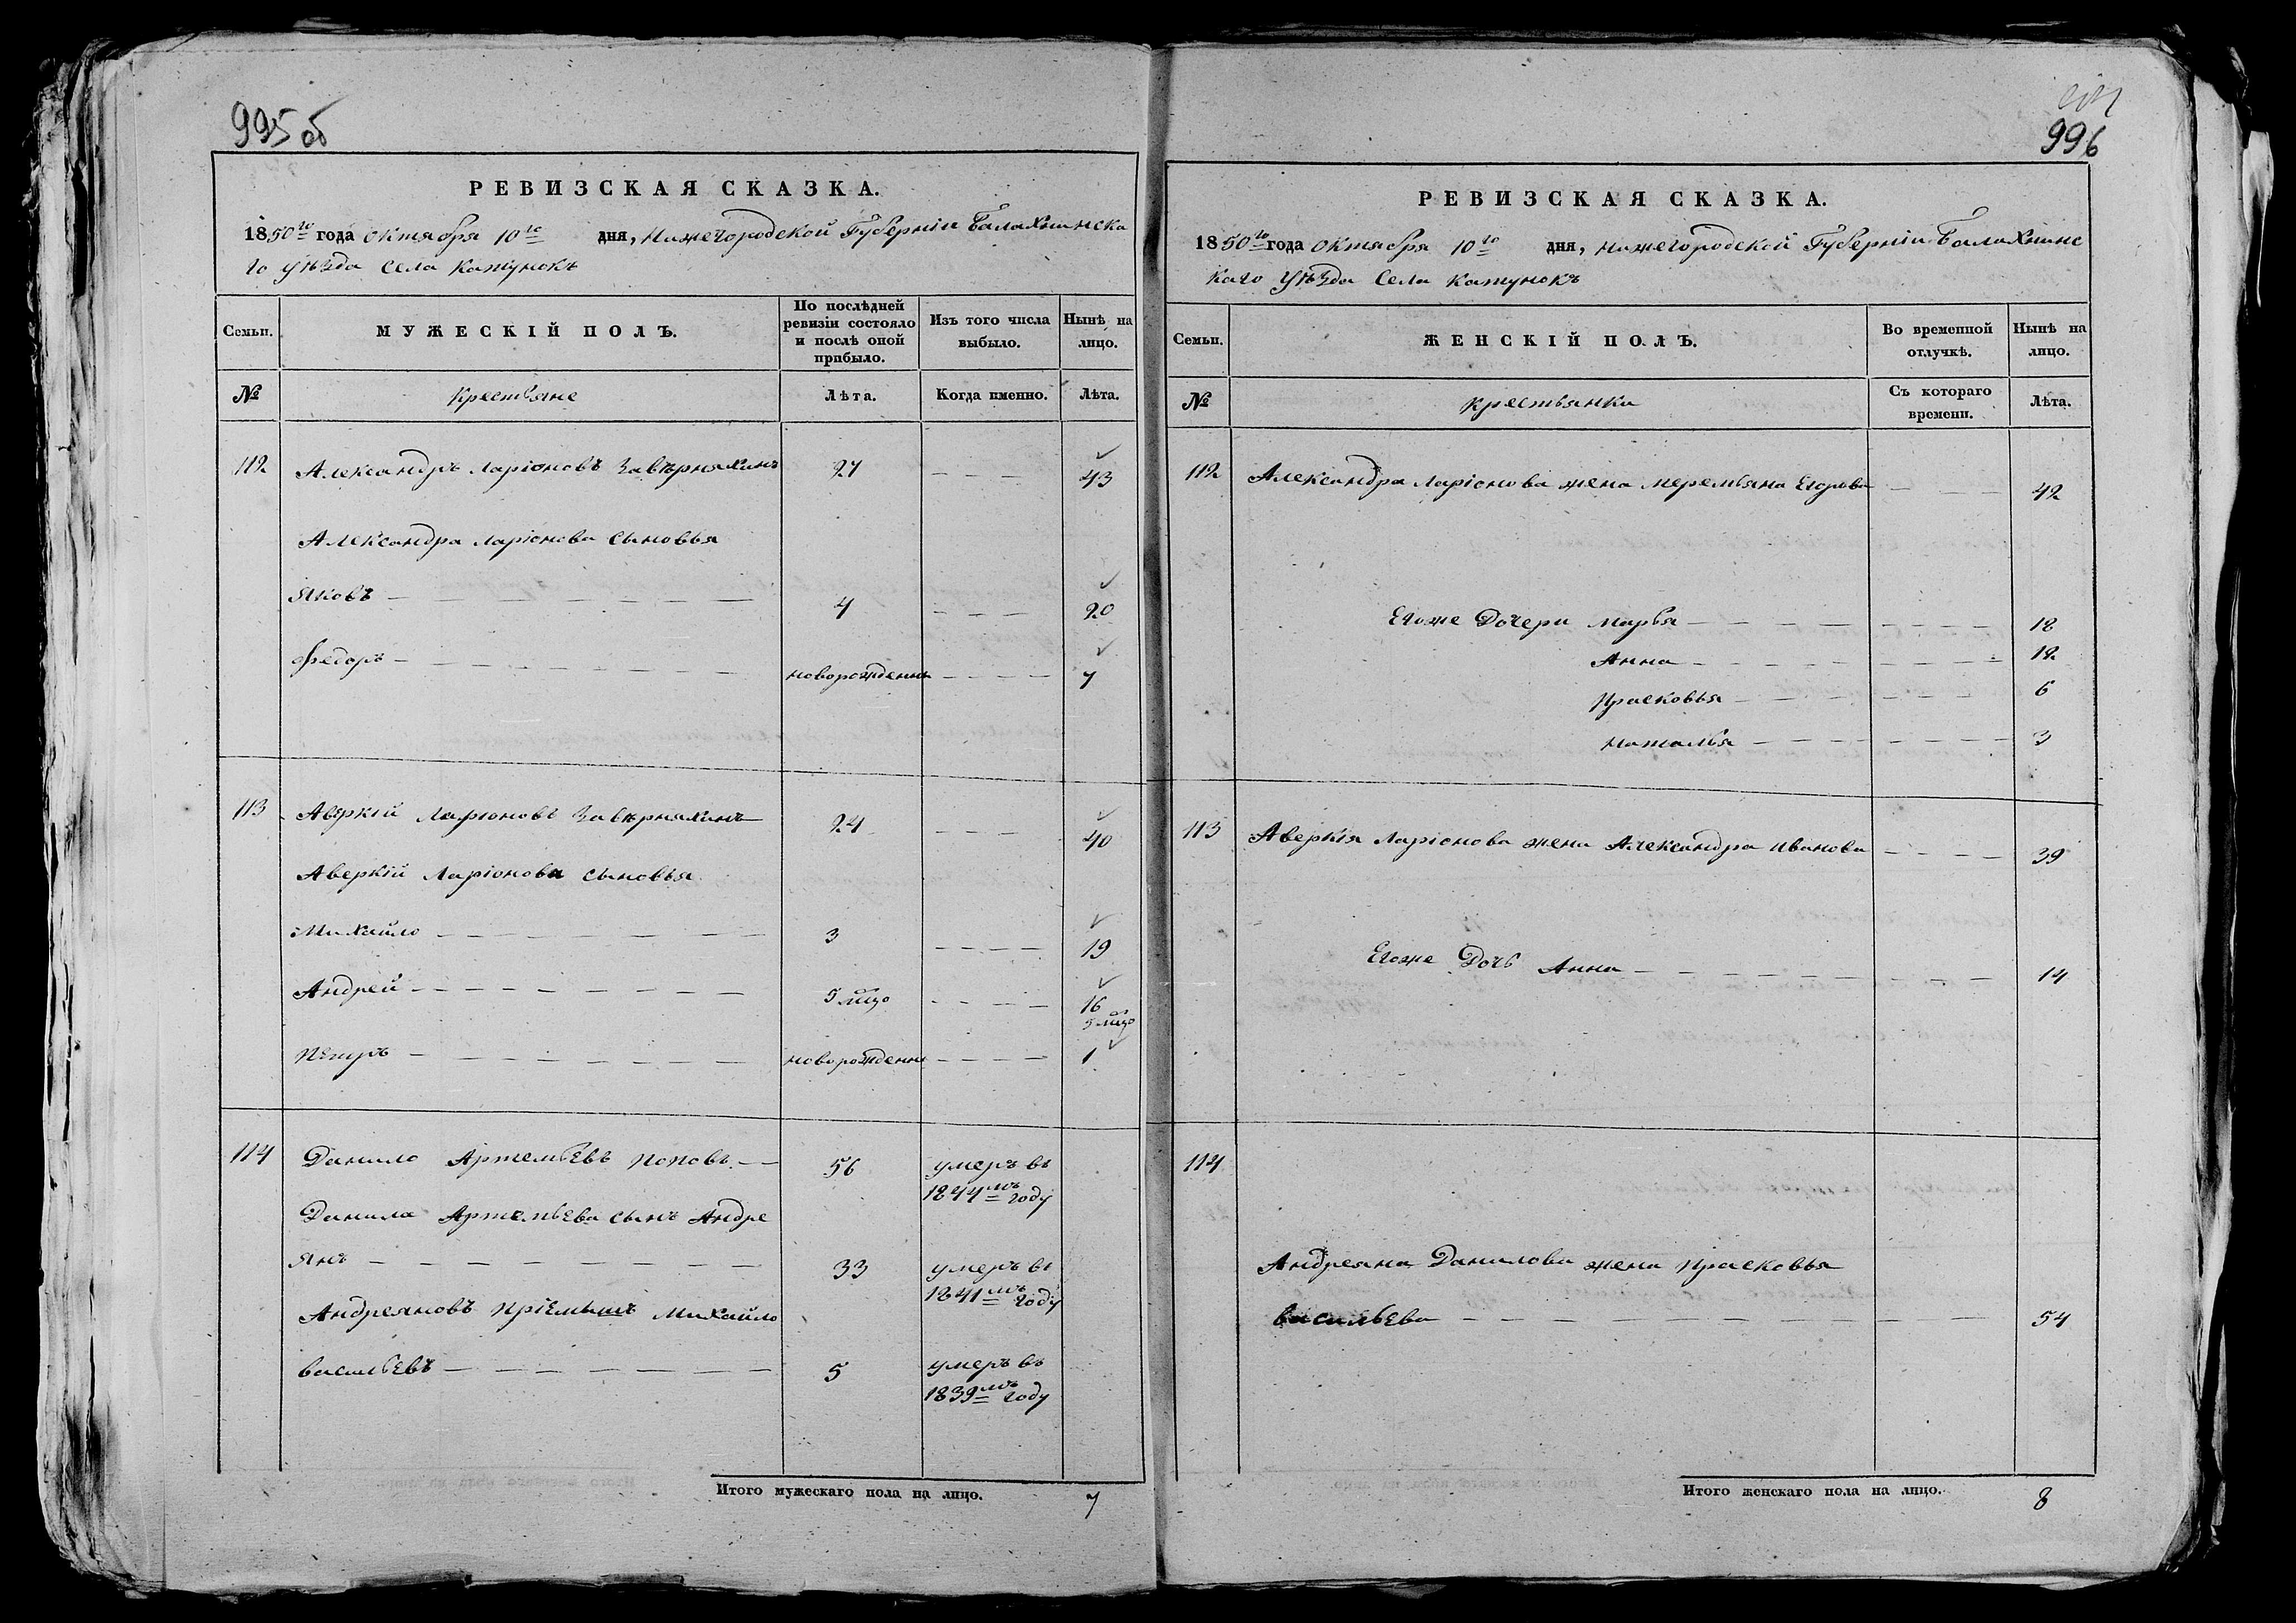 995 об
РЕВИЗСКАЯ СКАЗКА.
1850го года Октября 10го дня, Нижегородской Губерніи Балахнинска
го уѣзда Села Катунокъ
Семьи.
МУЖЕСКІЙ ПОЛЪ.
По послѣдней ревизіи состояло и послѣ оной прибыло.
Изъ того числа выбыло.
Нынѣ на лицо.
№
Крестьяне
Лѣта.
Когда именно.
Лѣта.
112 Александръ Ларіоновъ Завѣрняхинъ 27 — — — 43
Александра Ларіонова сыновья
Яковъ — — — 4 — — — 20
Федоръ — — — новорожденны — — — 7
113 Аверкій Ларіоновъ Завѣрняхинъ 24 — — — 40
Аверкій Ларіонова сыновья
Михайло — — — 3 — — — 19
Андрей — — — 5 мцо — — — 16
5 мцо
Петръ — — — новорожденны — — — 1
114 Данило Артемьевъ Поповъ — 56 умеръ въ
1844мъ году
Данила Артемьева сынъ Андре
янъ — — — 33 умеръ въ
1841мъ году
Андреяновъ пріемышъ Михайло
васильевъ — — — 5 умеръ въ
1839мъ году
Итого мужескаго пола на лицо. 7
996
РЕВИЗСКАЯ СКАЗКА.
1850го года Октября 10го дня, Нижегородской Губерніи Балахнинс
каго уѣзда Села Катунокъ
Семьи.
ЖЕНСКІЙ ПОЛЪ.
Во временной отлучкѣ.
Нынѣ на лицо.
№
Крестьянки
Съ котораго времени.
Лѣта.
112 Александра Ларіонова жена Меремьяна Егорова — — — 42
Егоже Дочери Марья — — — 18
Анна — — — 12
Прасковья — — — 6
Наталья — — — 3
113 Аверкія Ларіонова жена Александра Иванова — — — 39
Егоже Дочь Анна — — — 14
114
Андреяна Данилова жена Прасковья
васильева — — — 54
Итого женскаго пола на лицо. 8